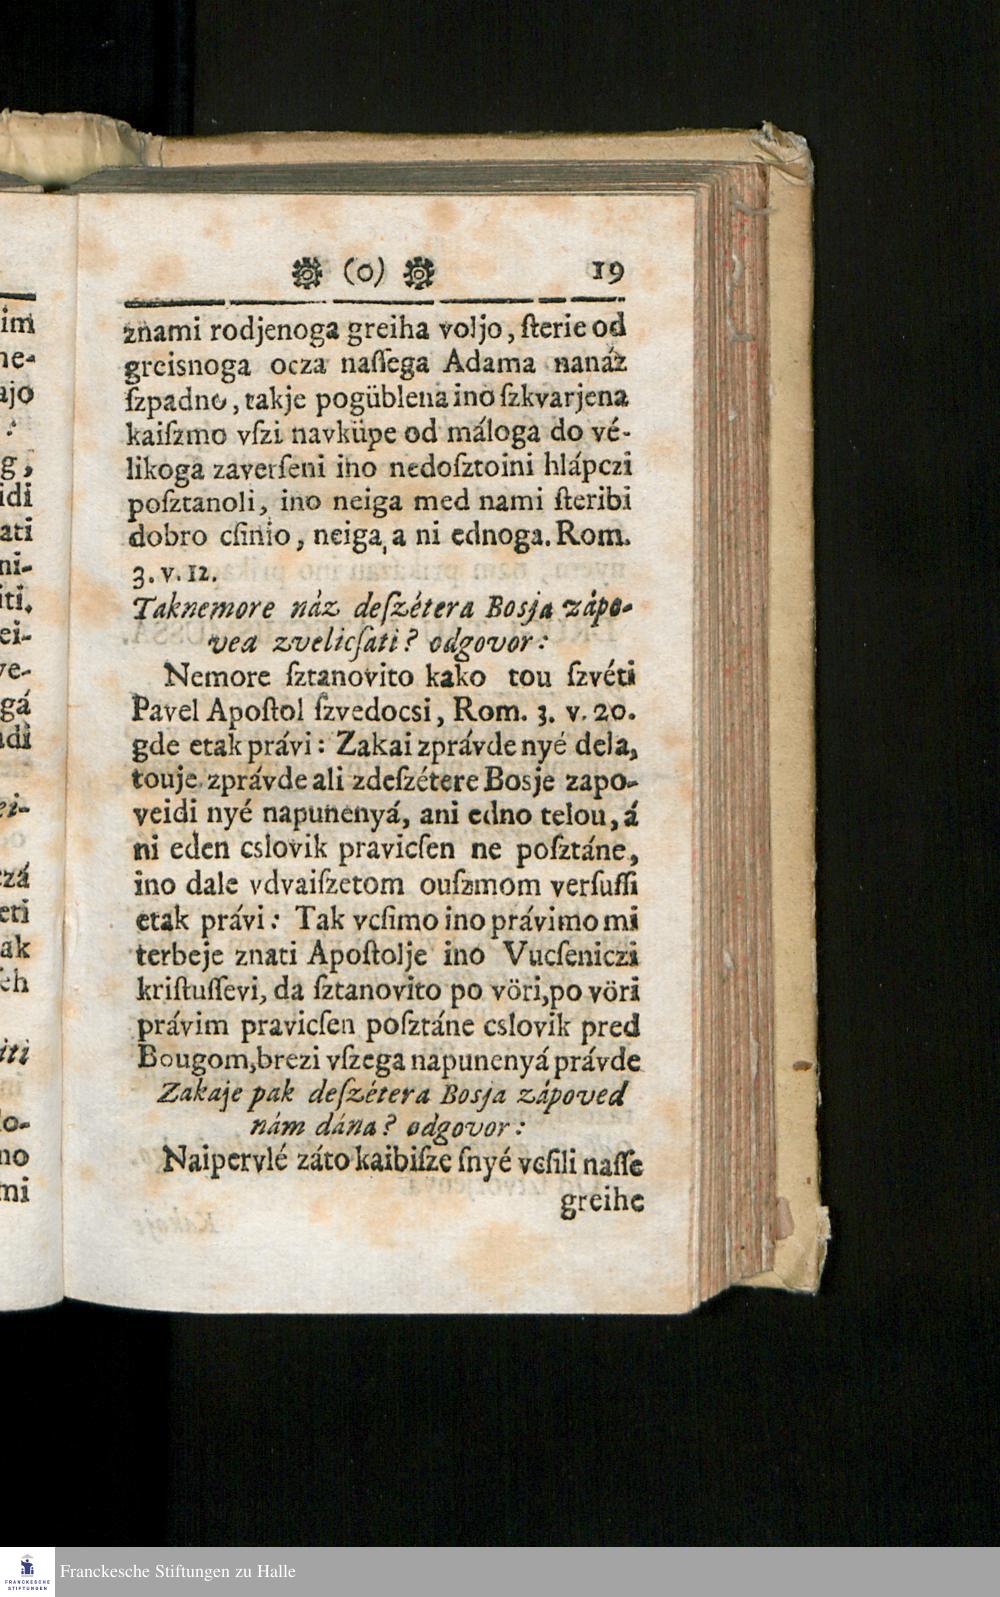 (o) 19
znami rodjenoga greiha voljo, ſterie od
greisnoga ocza naſſega Adama nanáz
ſzpadno, takje pogüblena ino ſzkvarjena
kaiſzmo vſzi navküpe od máloga do vé-
likoga zaverſeni ino nedoſztoini hlápczi
poſztanoli, ino neiga med nami ſteribi
dobro cſinio, neiga, a ni ednoga. Rom.
3. v. 12.
Taknemore náz deſzétera Bosja zápo-
vea zvelicſati? odgovor:
Nemore ſztanovito kako tou ſzvéti
Pavel Apoſtol ſzvedocsi, Rom. 3. v. 20.
gde etak právi: Zakai zprávde nyé dela,
touje zprávde ali zdeſzétere Bosje zapo-
veidi nyé napunenyá, ani edno telou, á
ni eden cslovik pravicſen ne poſztáne,
ino dale vdvaiſzetom ouſzmom verſuſſi
etak právi: Tak vcſimo ino právimo mi
terbeje znati Apoſtolje ino Vucſeniczi
kriſtuſſevi, da ſztanovito po vöri, po vöri
právim pravicſen poſztáne cslovik pred
Bougom, brezi vſzega napunenyá právde
Zakaje pak deſzétera Bosja zápoved
nám dána? odgovor:
Naipervlé záto kaibiſze ſnyé vcſili naſſe
greihe
im
ne-
ajo
g;
idi
ati
ni-
iti.
ei-
ve-
gá
adi
ei-
czá
eti
ak
ſeh
iti
lo-
no
mi
Franckesche Stiftungen zu Halle
FRANCKESCHE
STIFTUNGEN